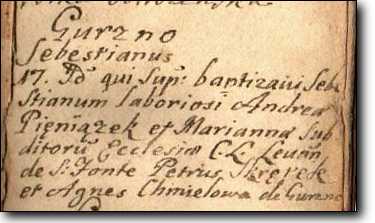 Gurzno
Sebestianus
17. Id qui sup: baptizavi Sebe
stianum laboriosi Andrea
Pieniązek et Marianna Sub
ditorum Ecclesia C.L. Levan:
de S: Fonte Petrus Skrepek
et Agnes Chmielowa de Gurzno